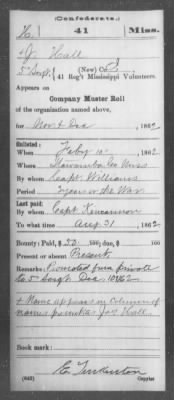 (Confederate.)
H. 41 Miss.
J Hall
5" Sergt, (New) Co. I, 41 Reg't Mississippi Volunteers.
Appears on
Company Muster Roll
of the organization named above,
for Nov & Dec, 1862.
Enlisted:
When Feby 10, 1862.
Where Co Miss
By whom Capt. Williams
Period 3 years or the War
Last paid:
By whom Capt
To what time Aug 31, 1862.
Bounty: Paid $ 50 100; due $ 100
Present or absent Present
Remarks: Promoted from private
to 5" Sergt. Dec 10/62
+ Name appears in Column of
names present as Jas Hall.
Book mark:
(642) Copyist.